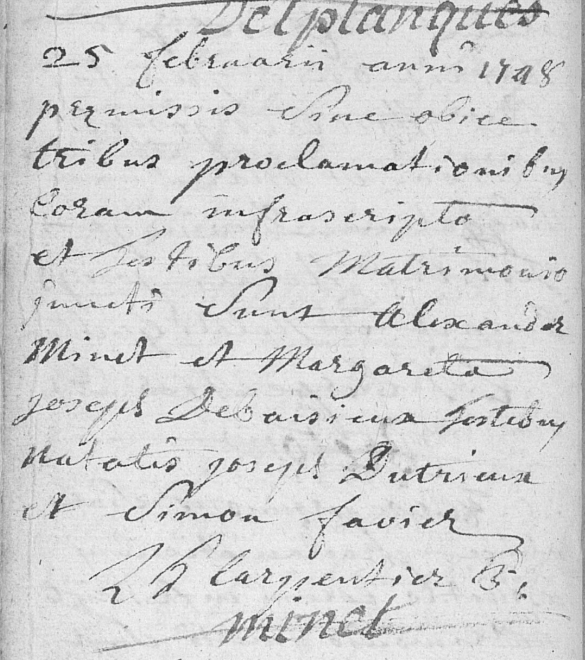 Delplanques
25 februarii anni 1748
premissis sine obice
tribus proclamationibus
Coram infrascripto
et testibus Matrimonio
juncti sunt Alexander
Minet et Margareta
joseph Debaisieux testibus
natalis joseph Dutrieux
et Simon favier
Carpentier
minet